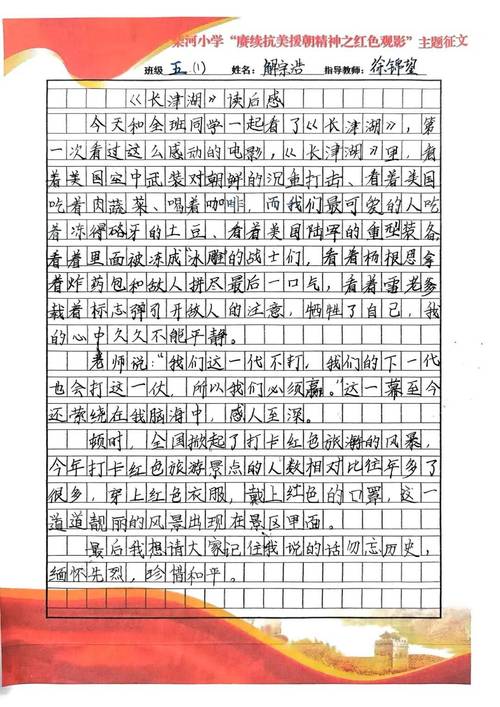 河小学“赓续抗美援朝精神之红色观影”主题征文
班级 五(1) 姓名: 解宗浩 指导教师: 徐锦望
《长津湖》读后感
今天和全班同学一起看了《长津湖》,第
一次看过这么感动的电影,《长津湖》里,看
着美国空中武装对朝鲜的沉重打击、看着美国
吃着肉蔬菜、喝着咖啡,而我们最可爱的人吃
着冻得硌牙的土豆、看着美国陆军的重型装备
看着里面被冻成“冰雕”的战士们,看着杨根思拿
着炸药包和敌人拼尽最后一口气,看着雷老爹
载着标志弹引开敌人的注意,牺牲了自己,我
的心中久久不能平静。
老师说:“我们这一代不打,我们的下一代
也会打这一仗,所以我们必须赢。”这一幕至今
还萦绕在我脑海中,感人至深。
顿时,全国掀起了打卡红色旅游的风暴,
今年打卡红色旅游景点的人数相对比往年多了
很多,穿上红色衣服,戴上红色的口罩,这一
道道靓丽的风景出现在景区里面。
最后我想请大家记住我说的话勿忘历史,
缅怀先烈,珍惜和平。